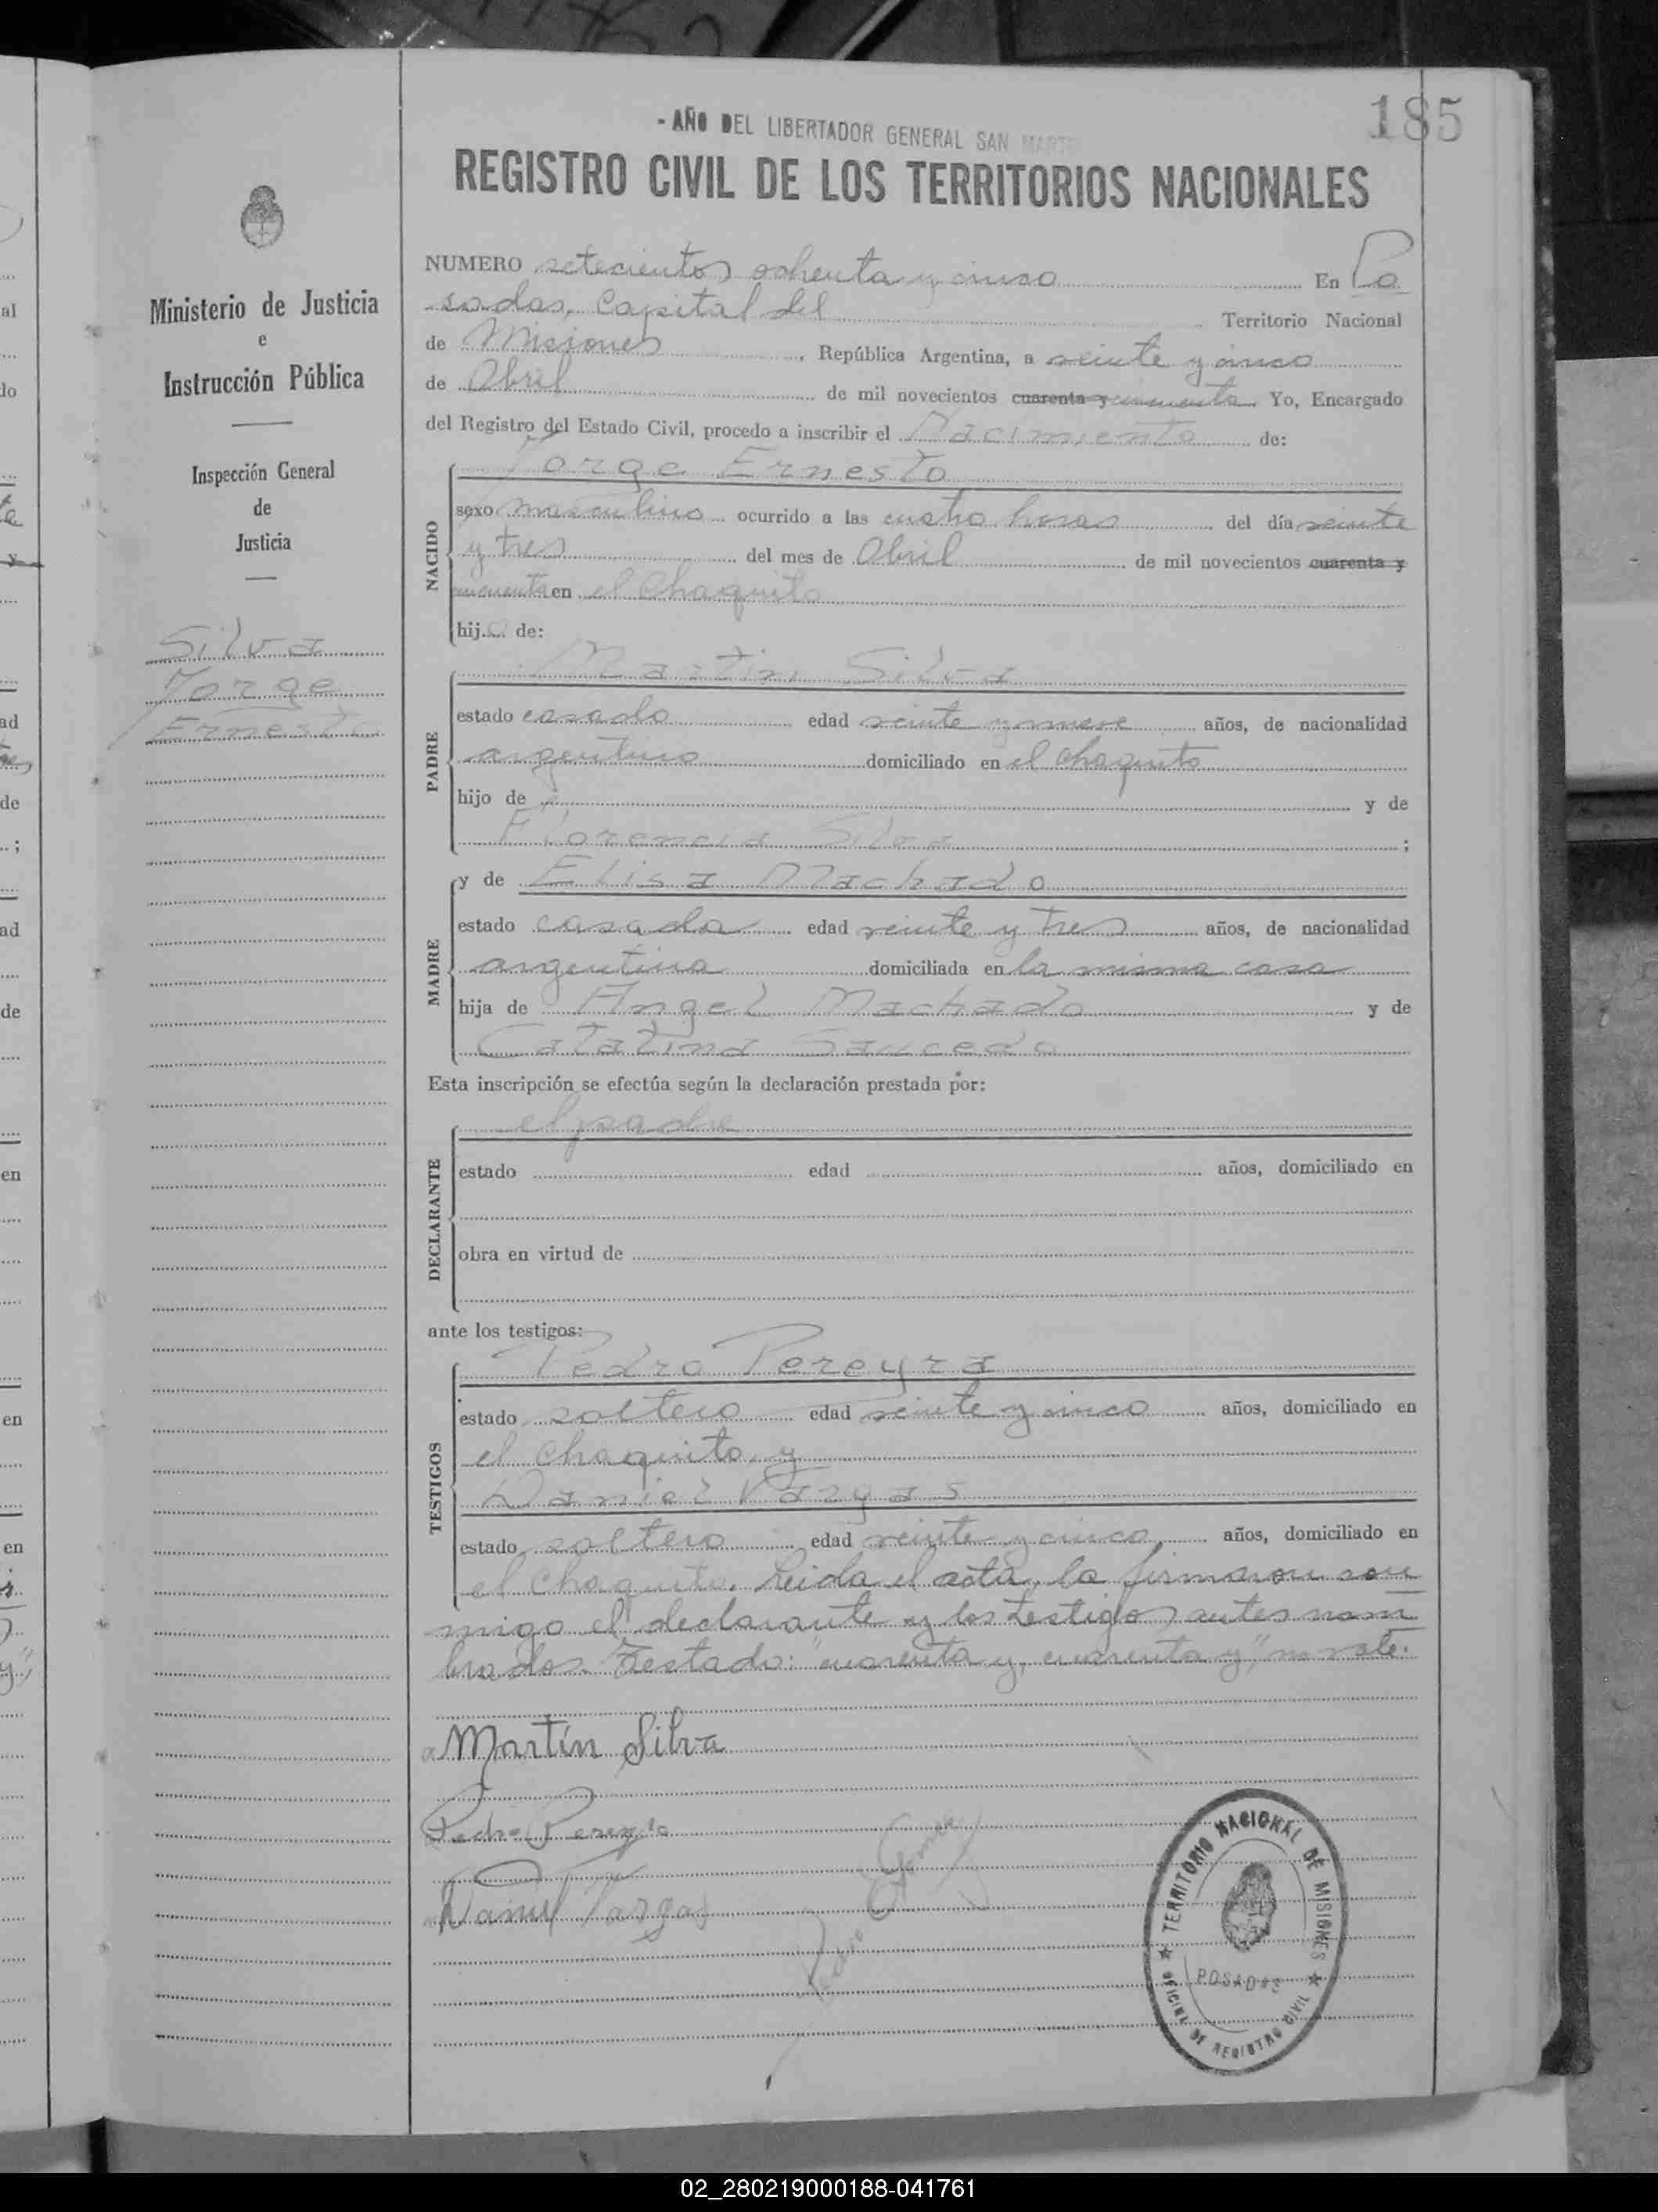 185
- AÑO DEL LIBERTADOR GENERAL SAN MARTIN
REGISTRO CIVIL DE LOS TERRITORIOS NACIONALES
Ministerio de Justicia
e
Instrucción Pública
Inspección General
de
Justicia
Silva
Jorge
Ernesto
NUMERO setecientos ochenta y cinco En Po
sadas, Capital del Territorio Nacional
de Misiones, República Argentina, a veinte y cinco
de Abril de mil novecientos cuarenta y cincuenta. Yo, Encargado
del Registro del Estado Civil, procedo a inscribir el Nacimiento de:
NACIDO
Jorge Ernesto
sexo masculino ocurrido a las cuatro horas del día veinte
y tres del mes de Abril de mil novecientos cuarenta y
cincuenta en el Chaquito
hijo de:
PADRE
Martin Silva
estado casado edad veinte y nueve años, de nacionalidad
argentino domiciliado en el Chaquito
hijo de y de
Florencia Silva ;
MADRE
y de Elisa Machado
estado casada edad veinte y tres años, de nacionalidad
argentina domiciliada en la misma casa
hija de Angel Machado y de
Catalina Saucedo
Esta inscripción se efectúa según la declaración prestada por:
DECLARANTE
el padre
estado edad años, domiciliado en
obra en virtud de
ante los testigos:
TESTIGOS
Pedro Pereyra
estado soltero edad veinte y cinco años, domiciliado en
el Chaquito, y
Daniel Vargas
estado soltero edad veinte y cinco, años, domiciliado en
el Chaquito. Leida el acta, la firmaron con
migo el declarante y los testigos antes nom
brados. Testado: "cuarenta y, cuarenta y", no vale.
Martín Silva
Pedro Pereyra
Daniel Vargas
Pedro Gomez
TERRITORIO NACIONAL DE MISIONES
POSADAS
OFICINA DE REGISTRO CIVIL
02_280219000188-041761